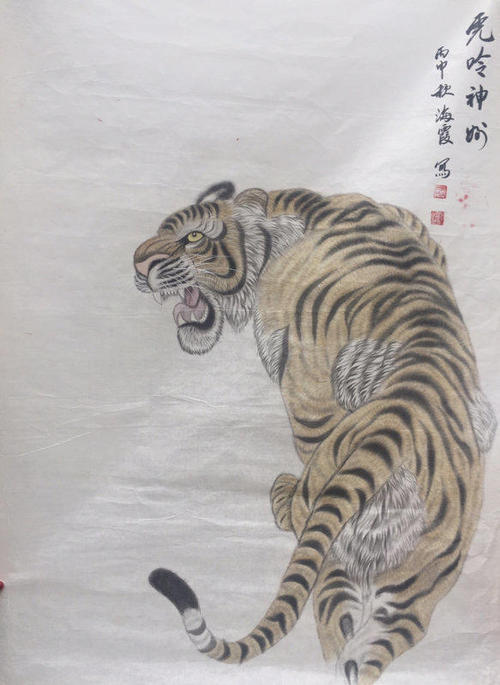 虎吟神州
丙申秋海霞寫